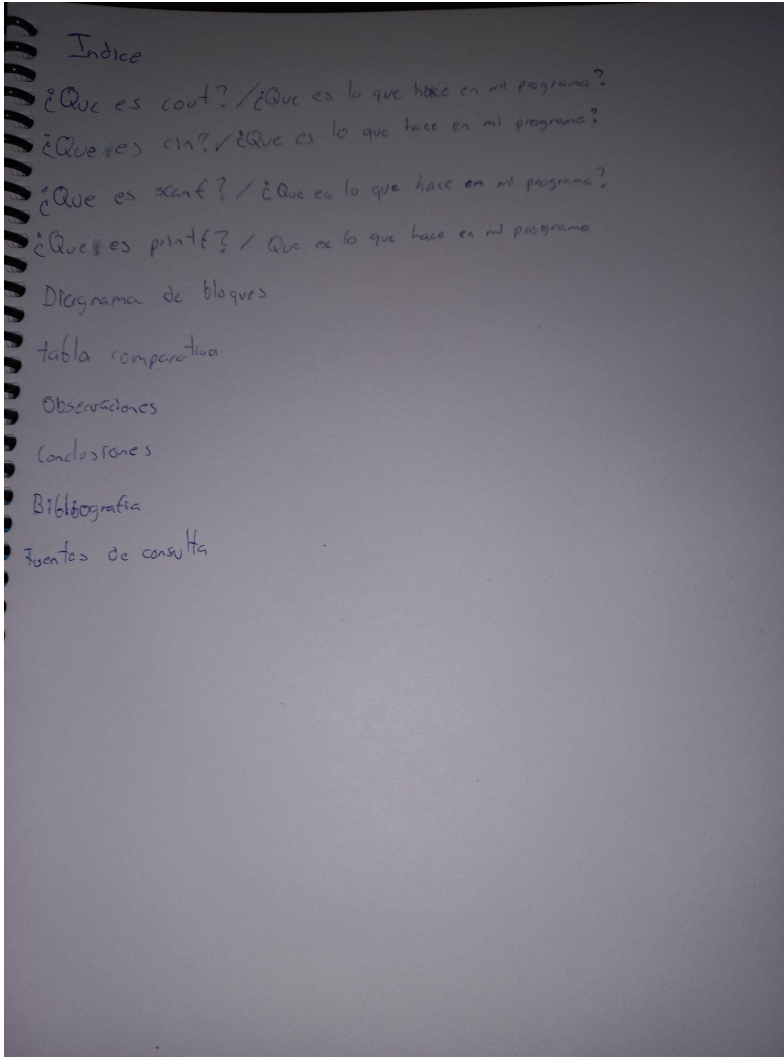 Indice
¿Que es cout? / ¿Que es lo que hace en mi programa?
¿Que es cin? / ¿Que es lo que hace en mi programa?
¿Que es scanf? / ¿Que es lo que hace en mi programa?
¿Que es printf? / Que es lo que hace en mi programa
Diagrama de bloques
tabla comparativa
Observaciones
Conclusiones
Bibliografia
Fuentes de consulta